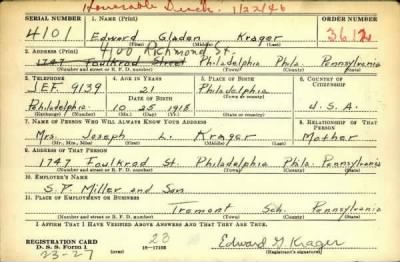 Honorable Disch. 1/22/46
SERIAL NUMBER 1. NAME (Print) ORDER NUMBER
4101 Edward Gladen Krager 3612
(First) (Middle) (Last)
4100 Richmond St.
2. ADDRESS (Print)
1747 Foulkrod Street Philadelphia Phila. Pennsylvania
(Number and street or R. F. D. number) (Town) (County) (State)
3. TELEPHONE 4. AGE IN YEARS 5. PLACE OF BIRTH 6. COUNTRY OF CITIZENSHIP
JEF. 9139 21 Philadelphia
DATE OF BIRTH (Town or county)
Philadelphia 10 25 1918 Pennsylvania U.S.A.
(Exchange) (Number) (Mo.) (Day) (Yr.) (State or country)
7. NAME OF PERSON WHO WILL ALWAYS KNOW YOUR ADDRESS 8. RELATIONSHIP OF THAT PERSON
Mrs. Joseph L. Krager Mother
(Mr., Mrs., Miss) (First) (Middle) (Last)
9. ADDRESS OF THAT PERSON
1747 Foulkrod St. Philadelphia Phila. Pennsylvania
(Number and street or R. F. D. number) (Town) (County) (State)
10. EMPLOYER'S NAME
S. P. Miller and Son
11. PLACE OF EMPLOYMENT OR BUSINESS
Tremont Sch. Pennsylvania
(Number and street or R. F. D. number) (Town) (County) (State)
I AFFIRM THAT I HAVE VERIFIED ABOVE ANSWERS AND THAT THEY ARE TRUE.
REGISTRATION CARD 23 Edward G Krager
D. S. S. Form 1 16—17105 (Registrant's signature)
23-27